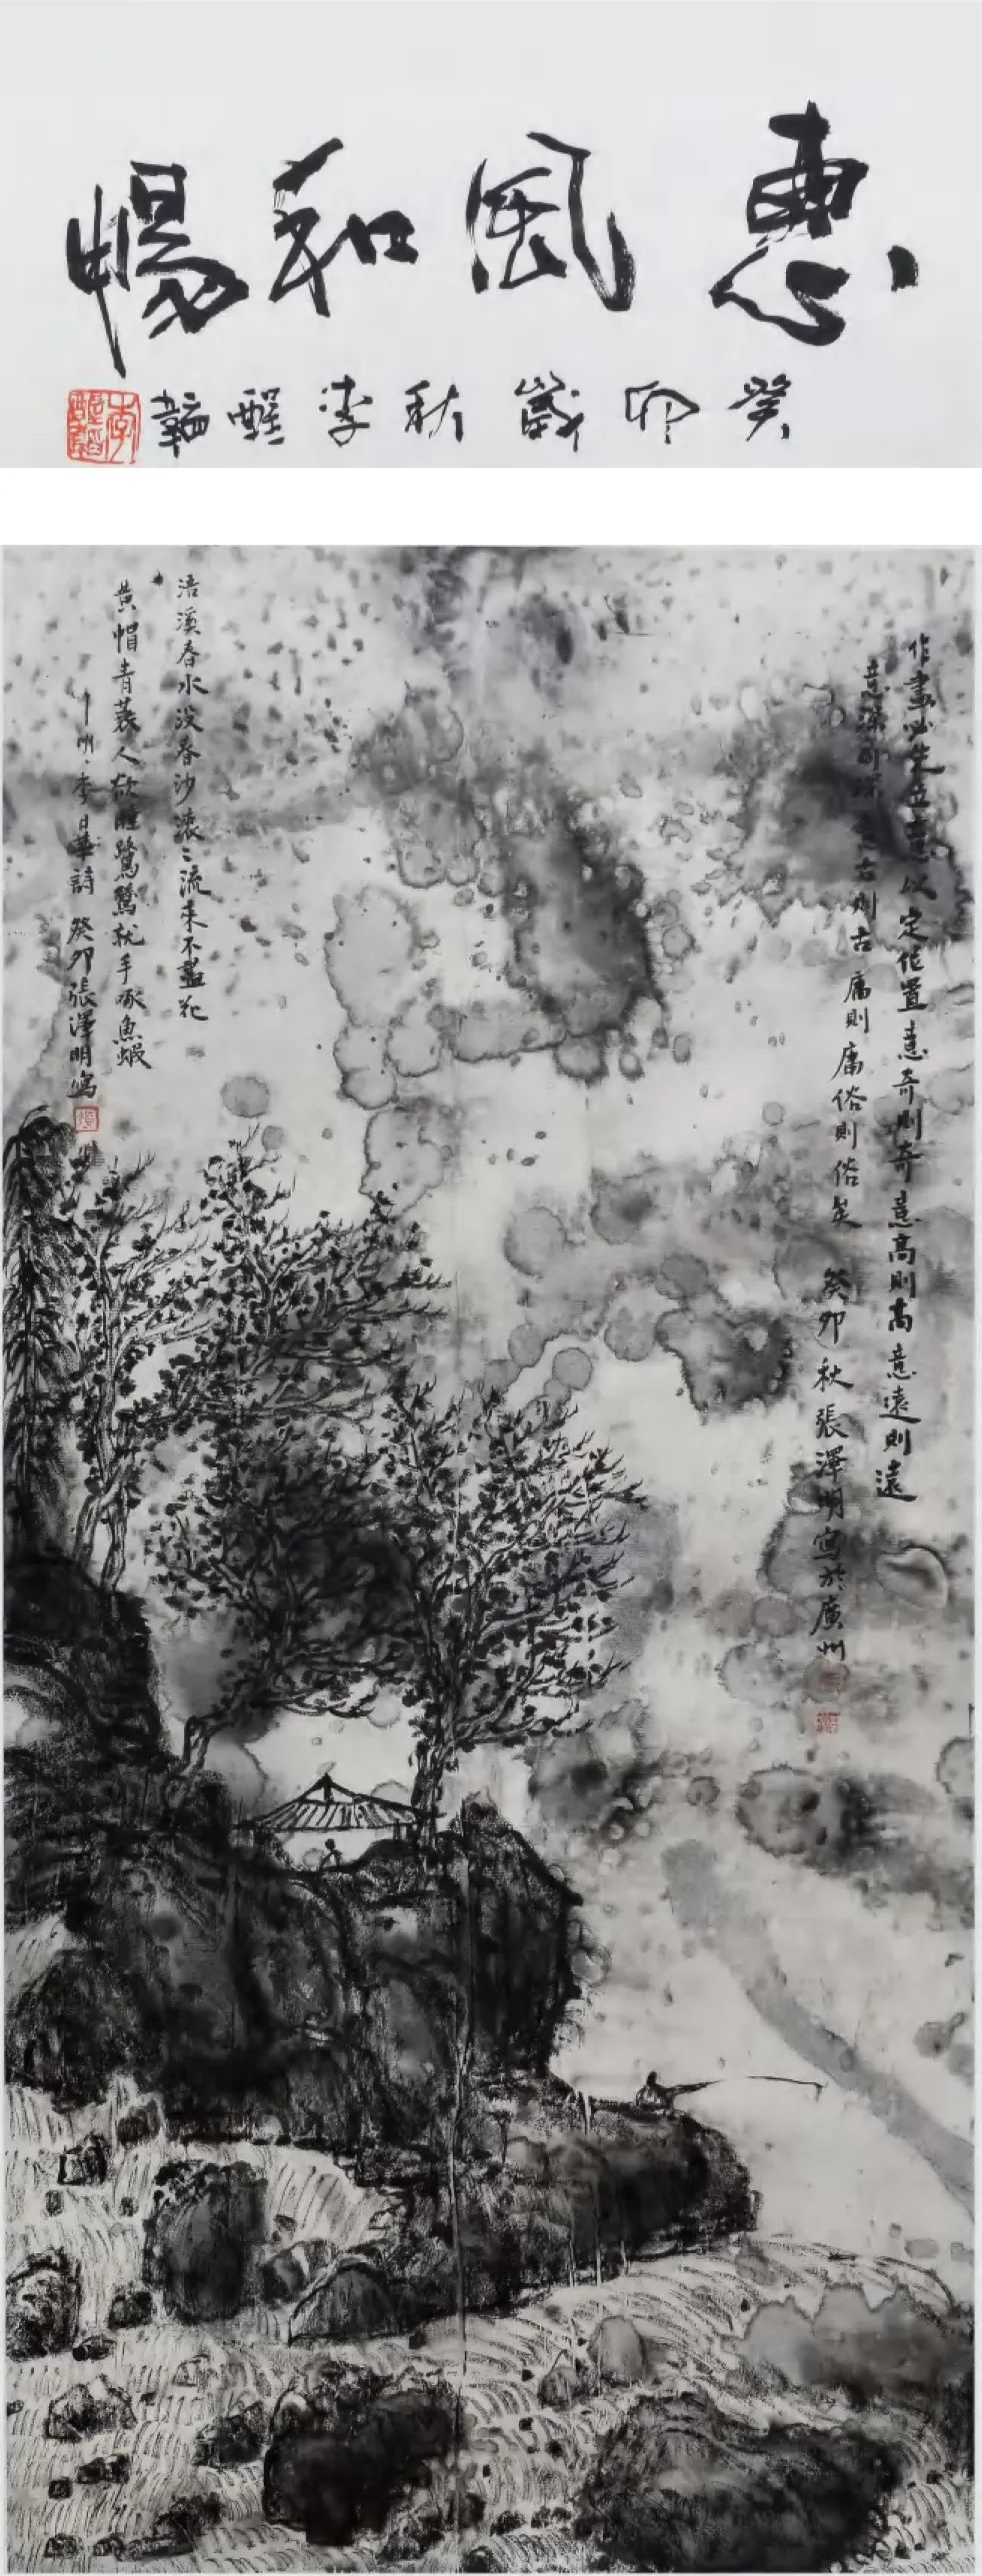 惠風和暢
癸卯歲秋李醒韜
作畫必先立意以定位置意奇則奇意高則高意遠則遠
意深則深意古則古庸則庸俗則俗矣
癸卯秋張澤明寫於廣州
浯溪春水没春沙滾〻流来不盡花
黄帽青蓑人欲睡鷺鶿就手啄魚蝦
明·李日華詩 癸卯張澤明寫